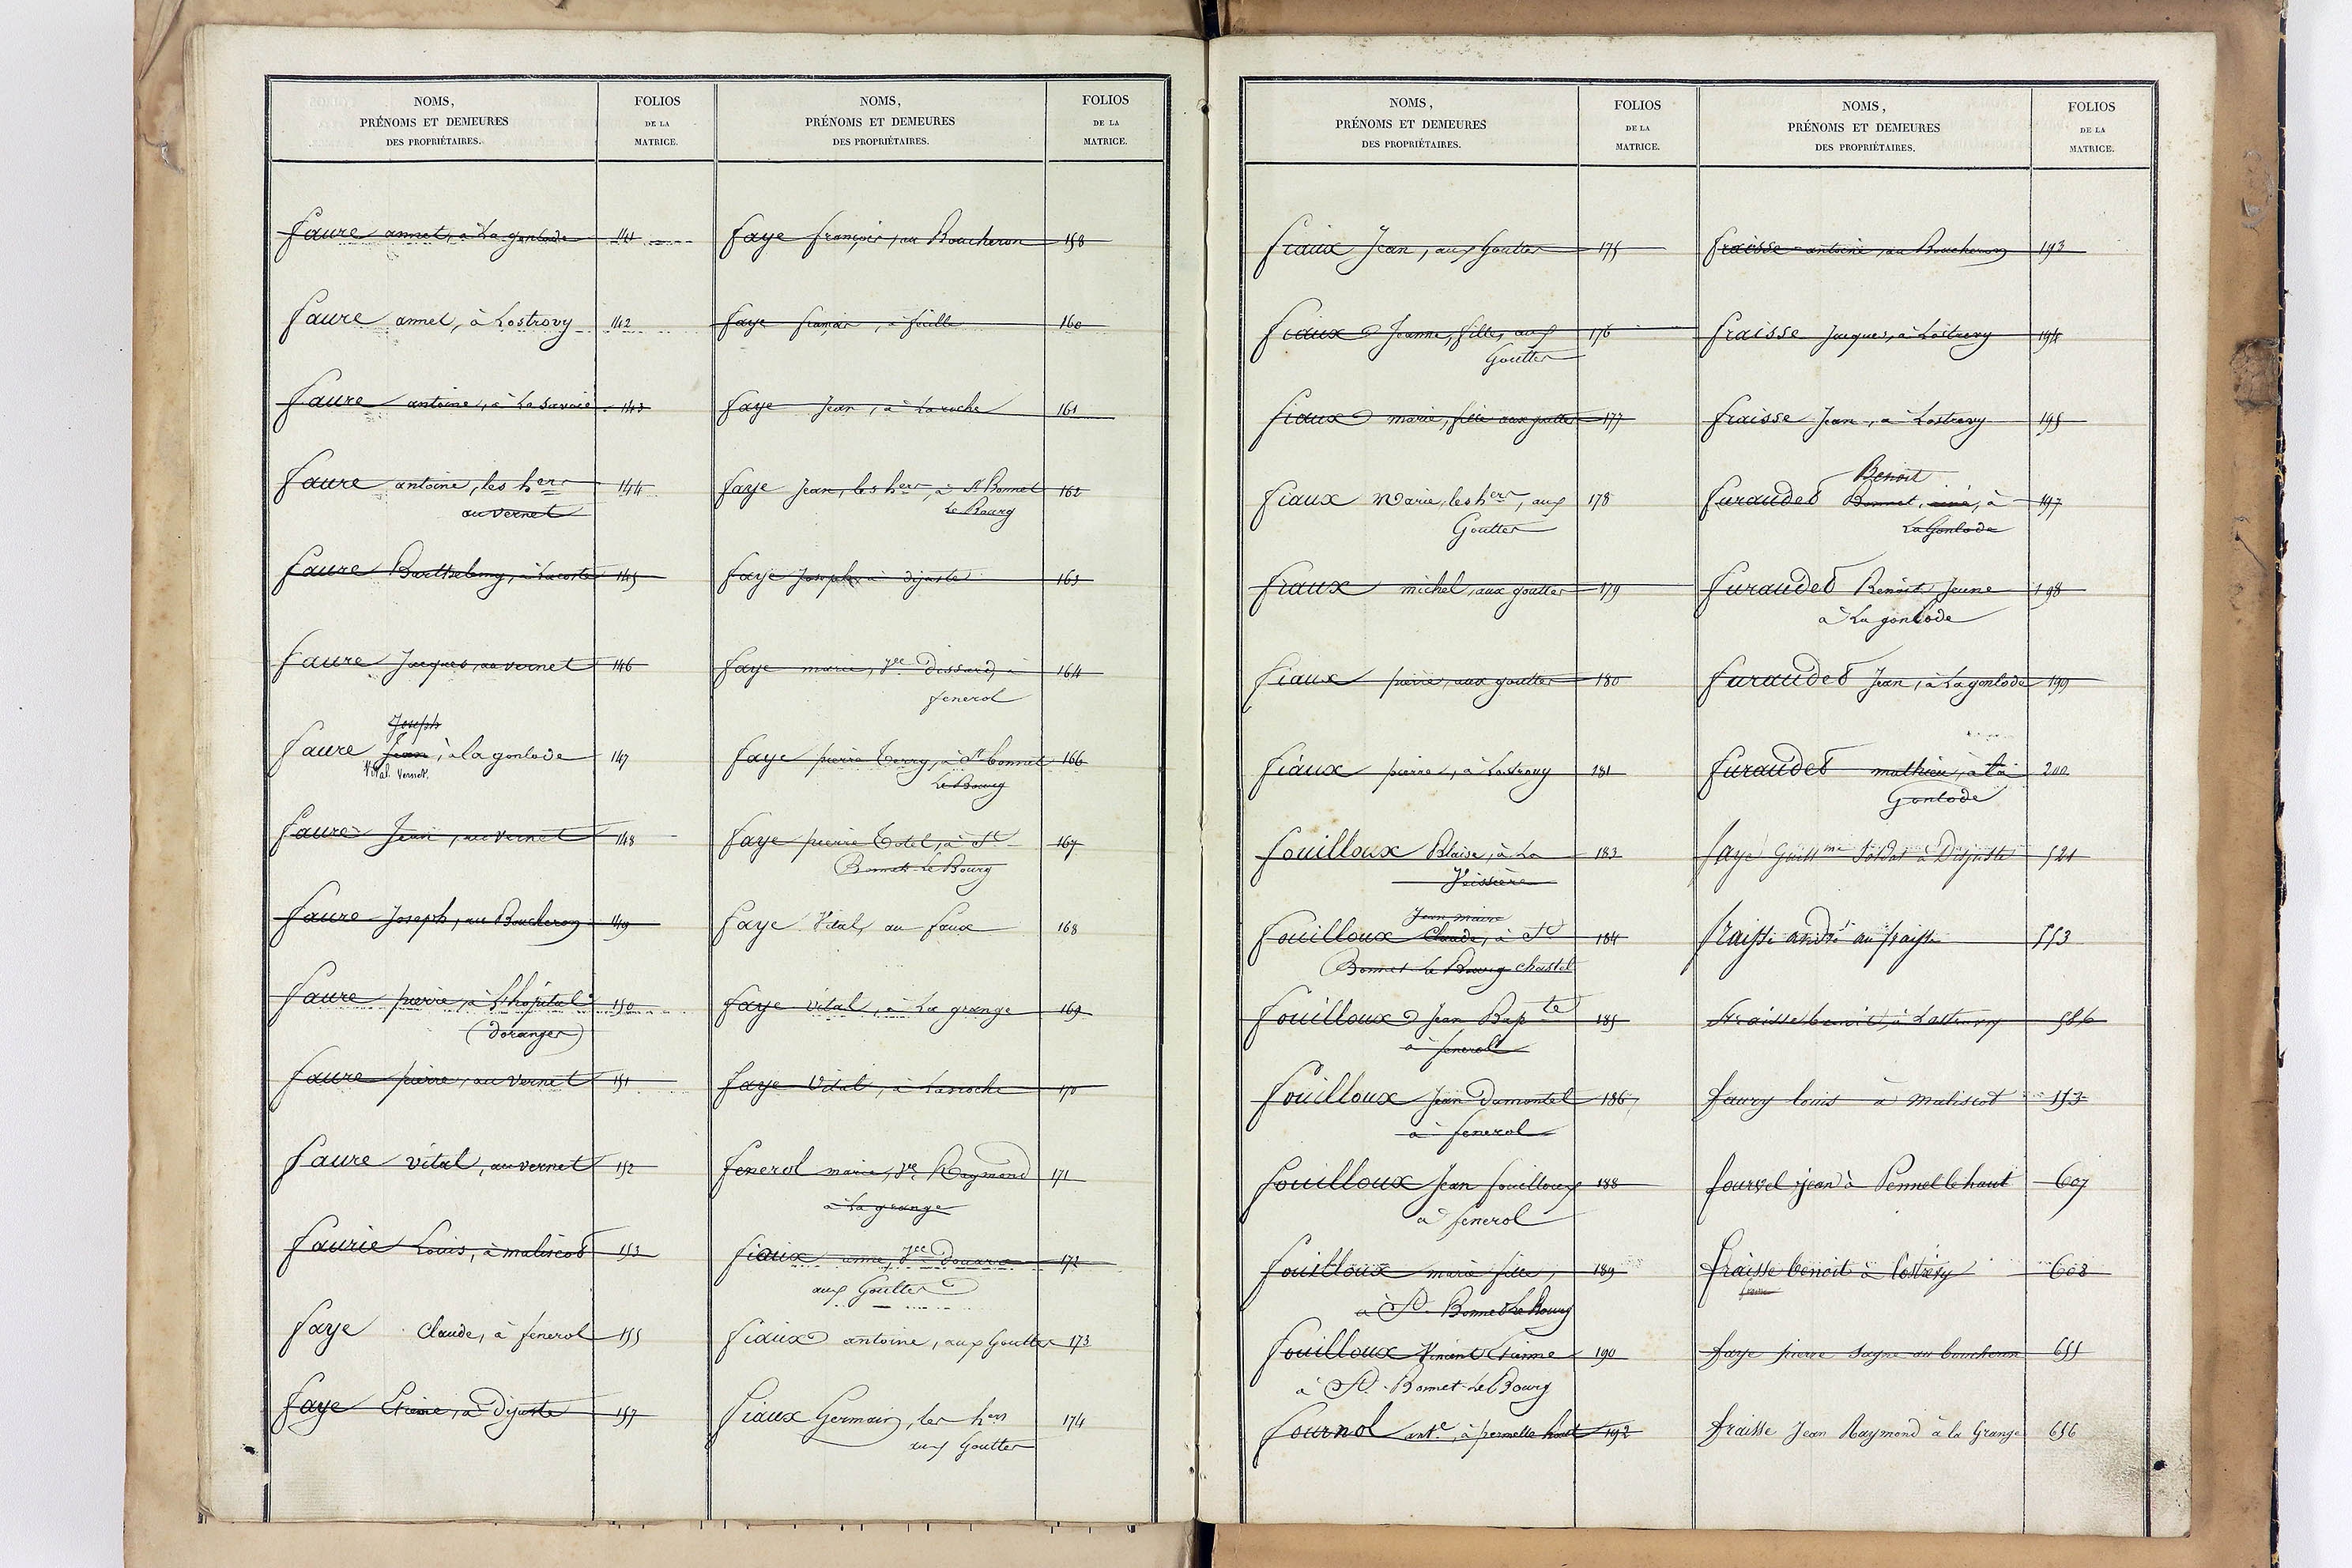 NOMS,
PRÉNOMS ET DEMEURES
DES PROPRIÉTAIRES.
FOLIOS
DE LA
MATRICE.
faure annet, à La gonlode 141
faure annet, à Lostrovy 142
faure antoine, à La Savoie 143
faure antoine, les hers 144
au vernet
faure Barthelemy, à Lacoste 145
faure Jacques, au vernet 146
Joseph
faure Jean, à la gonlode 147
Vital Vernet.
faure Jean, au vernet 148
faure Joseph, au Boucheron 149
faure pierre, à L'hôpital 150
(doranges)
faure pierre, au vernet 151
faure vital, au vernet 152
faurie Louis, à maliscot 153
faye Claude, à fenerol 155
faye Etienne, à Dijuste 157
NOMS,
PRÉNOMS ET DEMEURES
DES PROPRIÉTAIRES.
FOLIOS
DE LA
MATRICE.
faye françois, au Boucheron 158
faye françois, à 160
faye Jean, à La roche 161
faye Jean, les hers, à St Bonnet 162
Le Bourg
faye Joseph à dijuste 163
faye marie, Vve dissard, à 164
fenerol
faye pierre Terry, à St bonnet 166
Le Bourg
faye pierre Totel, à St 167
Bonnet Le Bourg
faye Vital, au faux 168
faye vital, à La grange 169
faye Vital, à Laroche 170
fenerol marie, Vve Raymond 171
à La grange
fiaux anne, Vve douare 172
aux Goutter
fiaux antoine, aux Goutter 173
fiaux Germain, les hers 174
aux Goutter
NOMS,
PRÉNOMS ET DEMEURES
DES PROPRIÉTAIRES.
FOLIOS
DE LA
MATRICE.
fiaux Jean, aux Goutter 175
fiaux Jeanne, fille, aux 176
Goutter
fiaux marie, fille aux goutter 177
fiaux Marie, les hers, aux 178
Goutter
fiaux michel, aux goutter 179
fiaux pierre, aux goutter 180
fiaux pierre, à Lostrovy 181
fouilloux Blaise, à La 183
Veissière
Jean marie
fouilloux Claude, à St 184
Bonnet Le Bourg chastel
fouilloux Jean Bapte 185
à fenerol
fouilloux Jean Dumontel 186
à fenerol
fouilloux Jean fouilloux 188
à fenerol
fouilloux marie fille, 189
à St. Bonnet Le Bourg
fouilloux Vincent Etienne 190
à St. Bonnet Le Bourg
fournol ante, à pennelle haut 192
NOMS,
PRÉNOMS ET DEMEURES
DES PROPRIÉTAIRES.
FOLIOS
DE LA
MATRICE.
fraisse antoine, au Boucheron 193
fraisse Jacques, à Lostrovy 194
fraisse Jean, à Lostrovy 195
Benoit
furaudet Bonnet, ainé, à 197
La Gonlode
furaudet Benoit, Jeune 198
à La gonlode
furaudet Jean, à La gonlode 199
furaudet mathieu, à la 200
Gonlode
faye Guillme Soldat à Dijuste 521
fraisse andré au fraisse 553
fraisse benoit, à Lostrovy 586
faury louis à Maliscot 153
fourvel jean à Pennel le haut 607
fraisse benoit à lostrovy 608
faye pierre Sagne au boucheron 655
fraisse Jean Raymond à la Grange 656